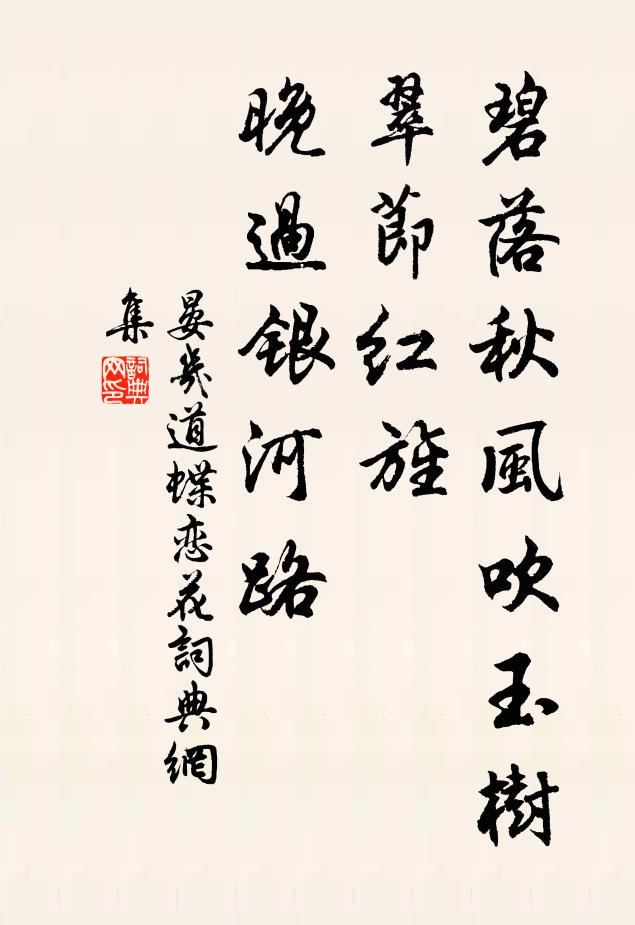 碧落秋風吹玉樹
翠節紅旌
晚過銀河路
晏幾道蝶恋花詞典網
集
詞典
网印